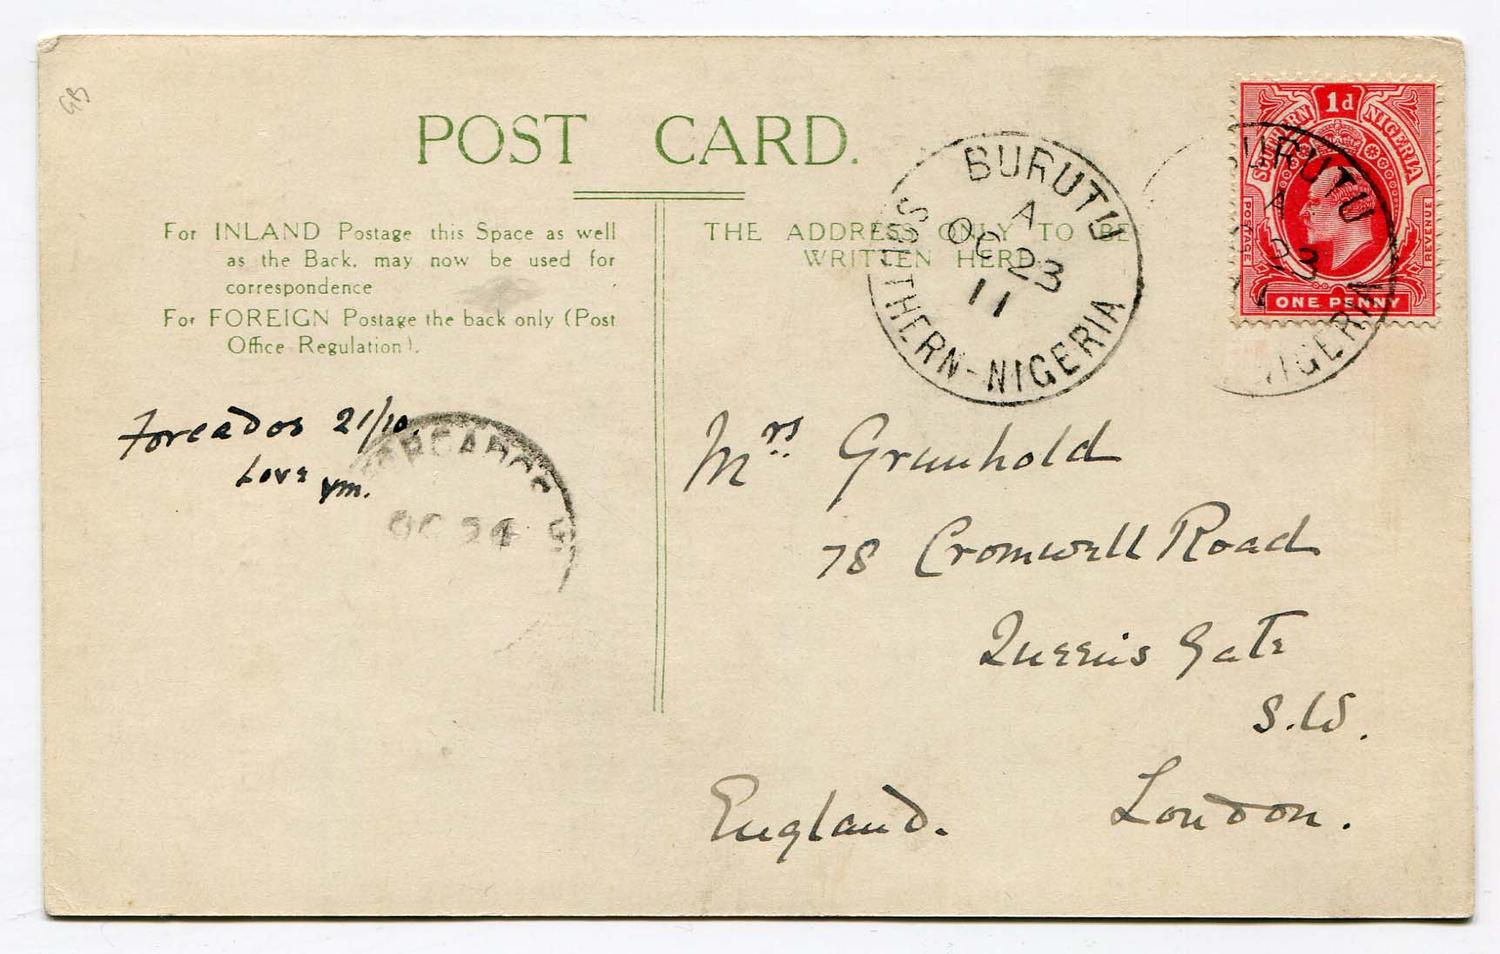 POST CARD.
For INLAND Postage this Space as well
as the Back, may now be used for
correspondence
For FOREIGN Postage the back only (Post
Office Regulation).
THE ADDRESS ONLY TO BE
WRITTEN HERE.
BURUTU
A
OC 23
11
SOUTHERN-NIGERIA
1d
SOUTHERN NIGERIA
POSTAGE
REVENUE
ONE PENNY
URUTU
A
23
11
NIGERIA
Forcados 21/10.
Love
FORCADOS
OC 24
Mrs Grunhold
78 Cromwell Road
Queen's Gate
S.W.
London.
England.